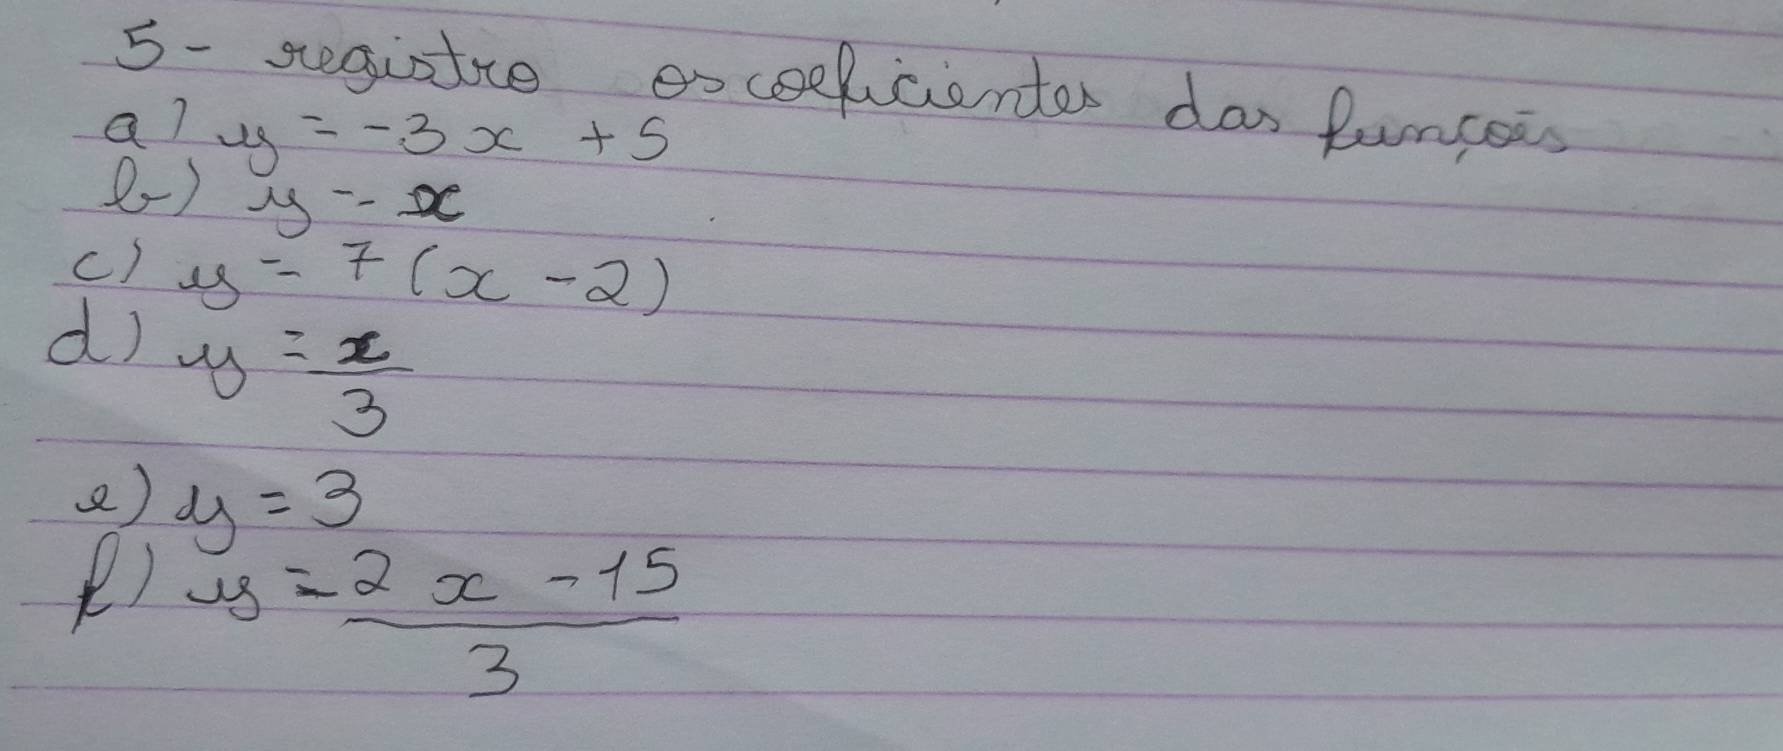 5- registre os coeficientes das funçois
a) y = -3x + 5
b) y = x
c) y = 7(x - 2)
d) y = x
3
e) y = 3
f) y = 2x - 15
3